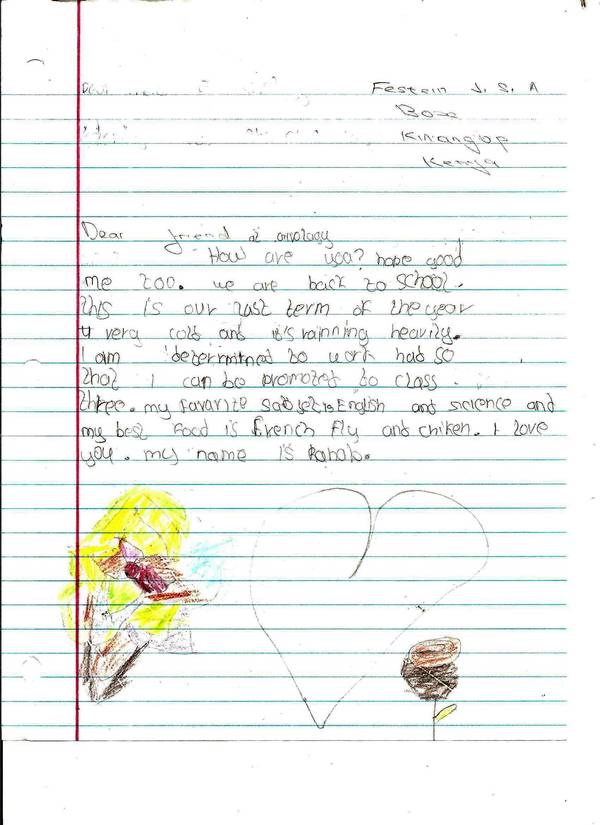 Festein J. S. A
Box
Kinangop
Kenya
Dear friend at
How are you? hope good
me too. we are back to school.
this is our last term of the year
very cold and it's rainning heavily.
I am determined to work had so
that I can be promoted to class.
three. my favarite is English and sicience and
my best food is french fly and chiken. I love
you. my name is